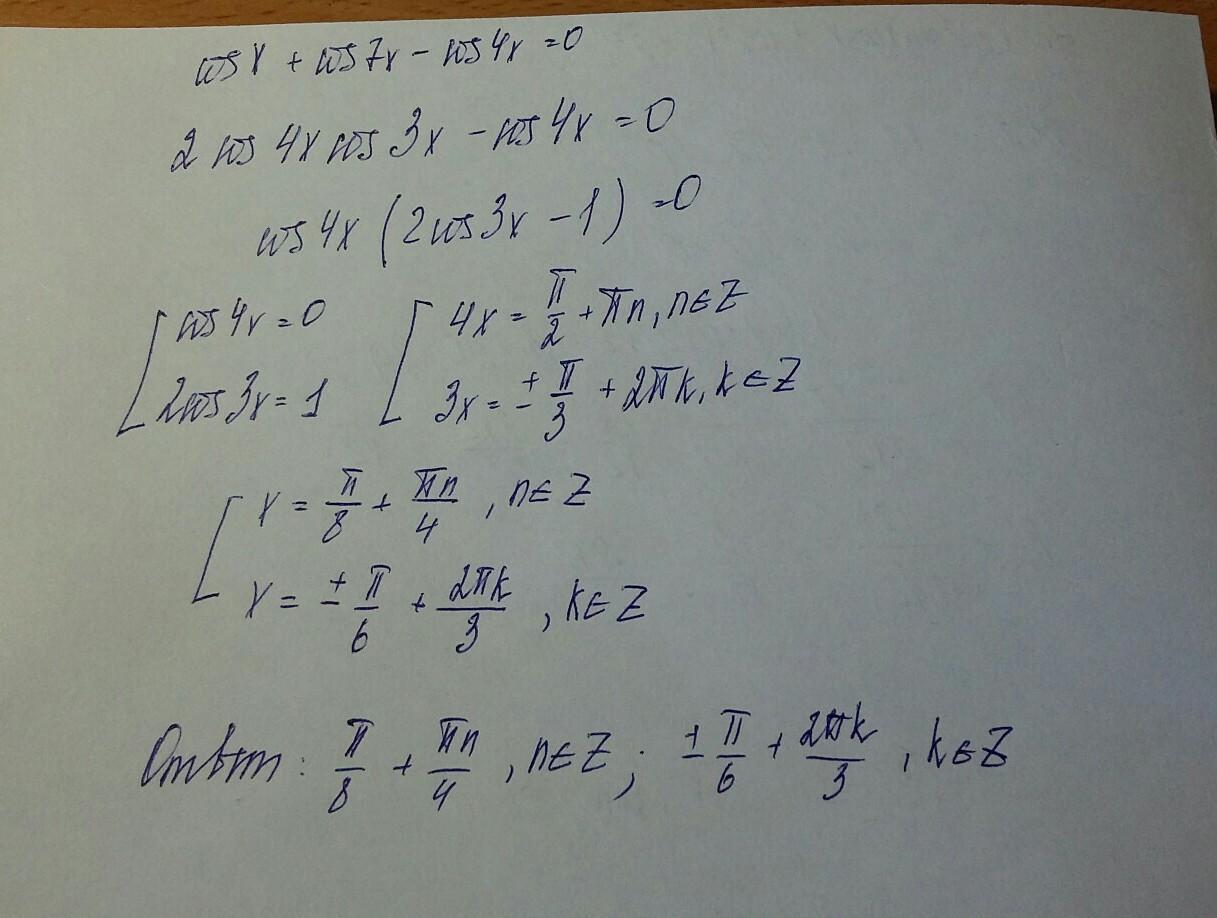 cos x + cos 7x - cos 4x = 0
2 cos 4x cos 3x - cos 4x = 0
cos 4x (2 cos 3x - 1) = 0
[ cos 4x = 0 [ 4x = π/2 + πn, n ∈ Z
2 cos 3x = 1 3x = ± π/3 + 2πk, k ∈ Z
[ x = π/8 + πn/4 , n ∈ Z
x = ± π/6 + 2πk/3 , k ∈ Z
Ответ: π/8 + πn/4 , n ∈ Z ; ± π/6 + 2πk/3 , k ∈ Z